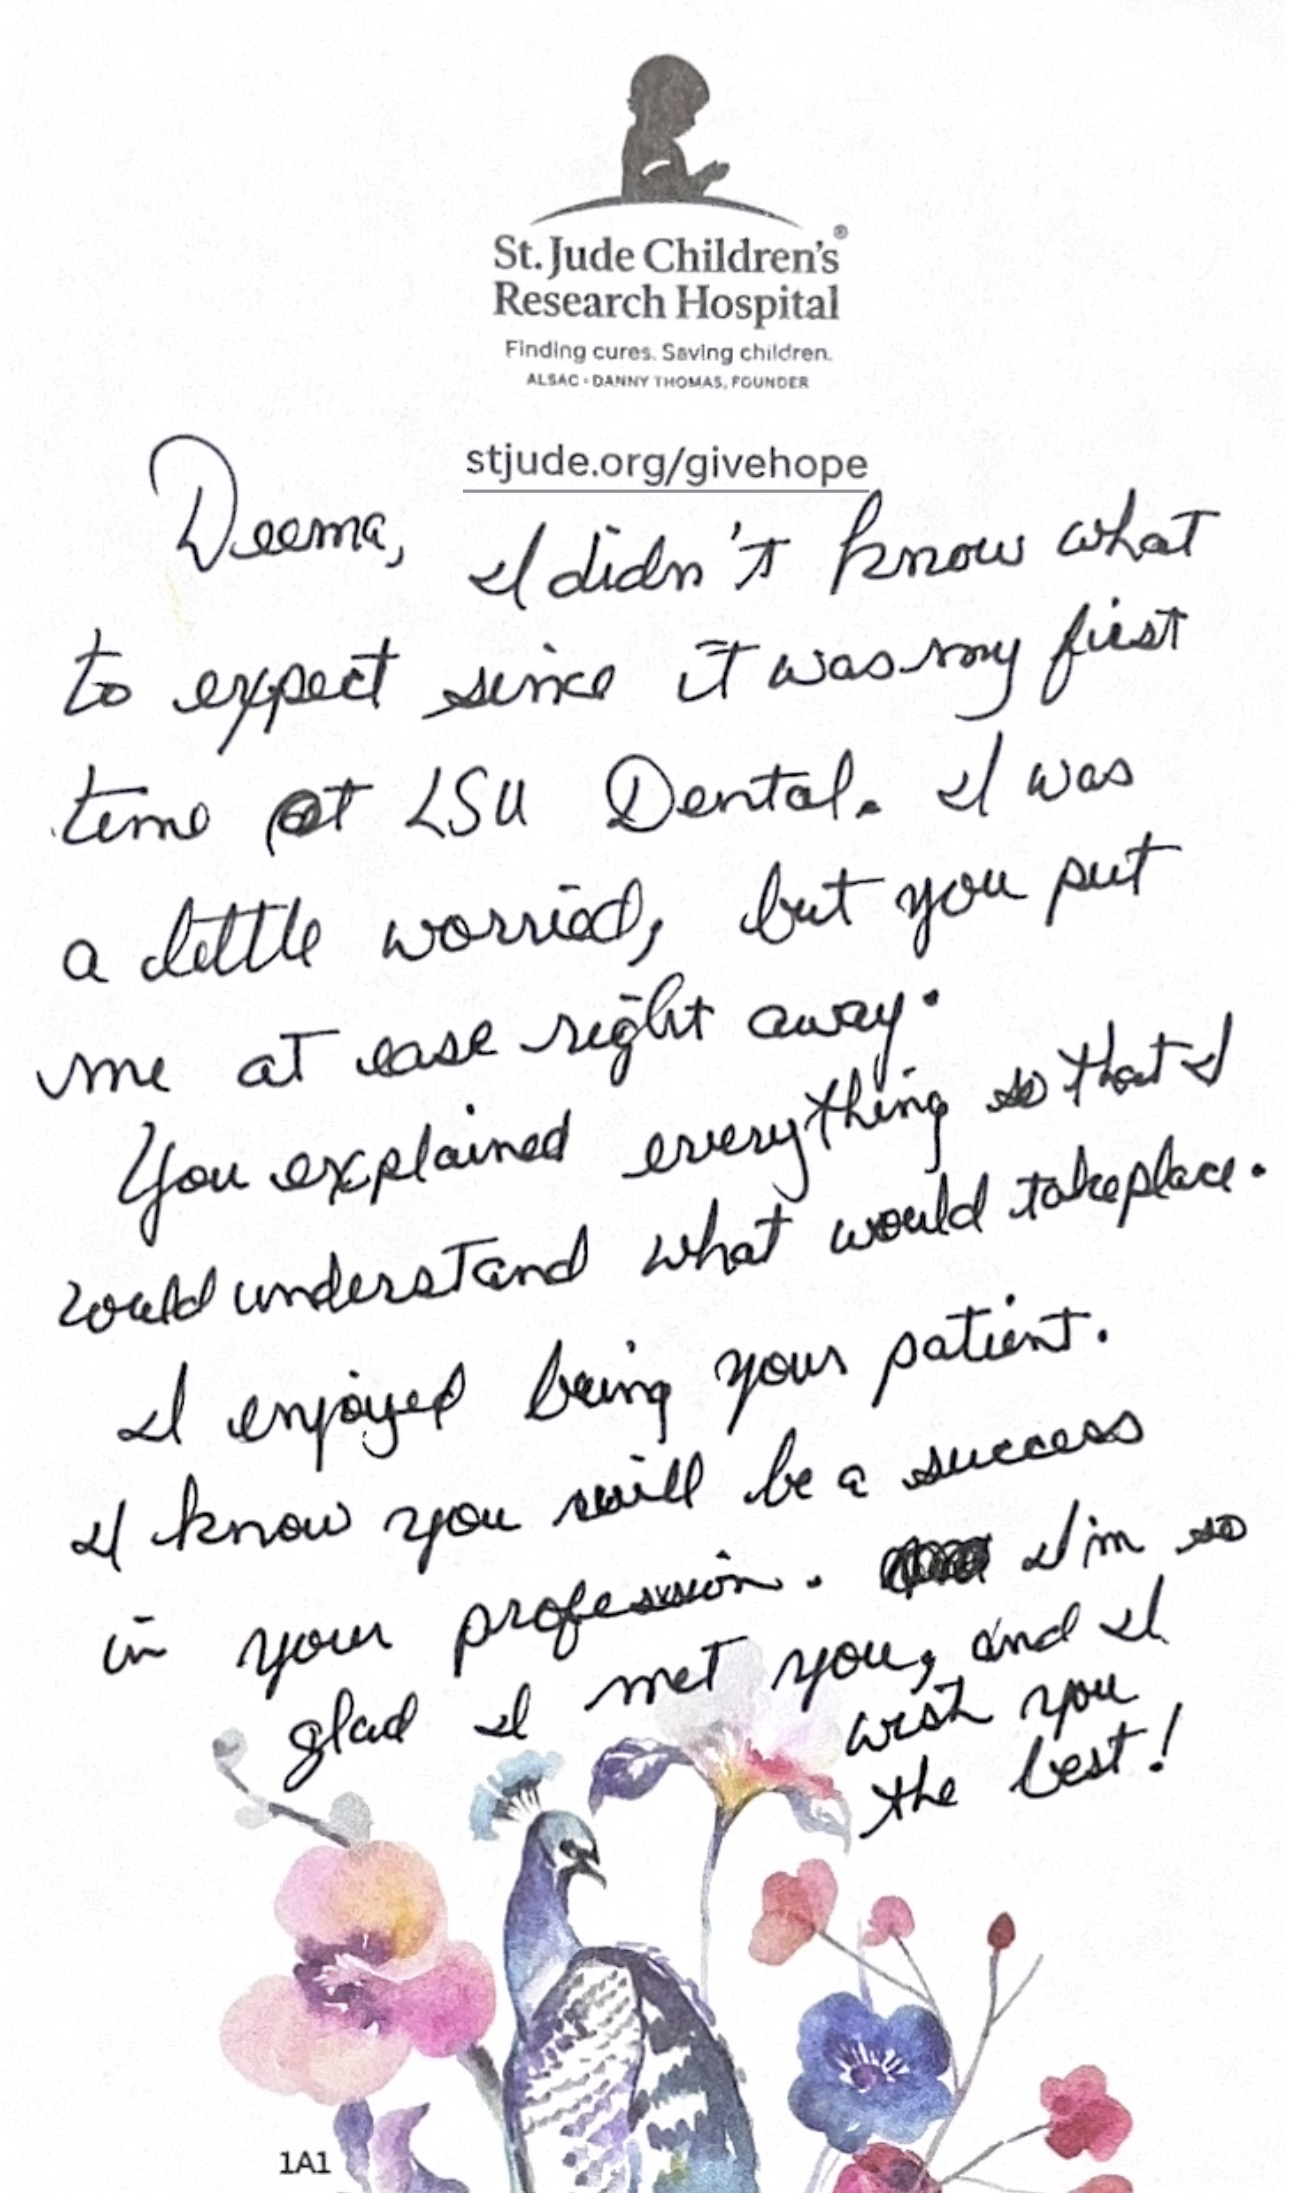 St. Jude Children's®
Research Hospital
Finding cures. Saving children.
ALSAC • DANNY THOMAS, FOUNDER
stjude.org/givehope
Deema, I didn't know what
to expect since it was my first
time at LSU Dental. I was
a little worried, but you put
me at ease right away.
You explained everything so that I
could understand what would take place.
I enjoyed being your patient.
I know you will be a success
in your profession. I'm so
glad I met you, and I
wish you
the best!
1A1